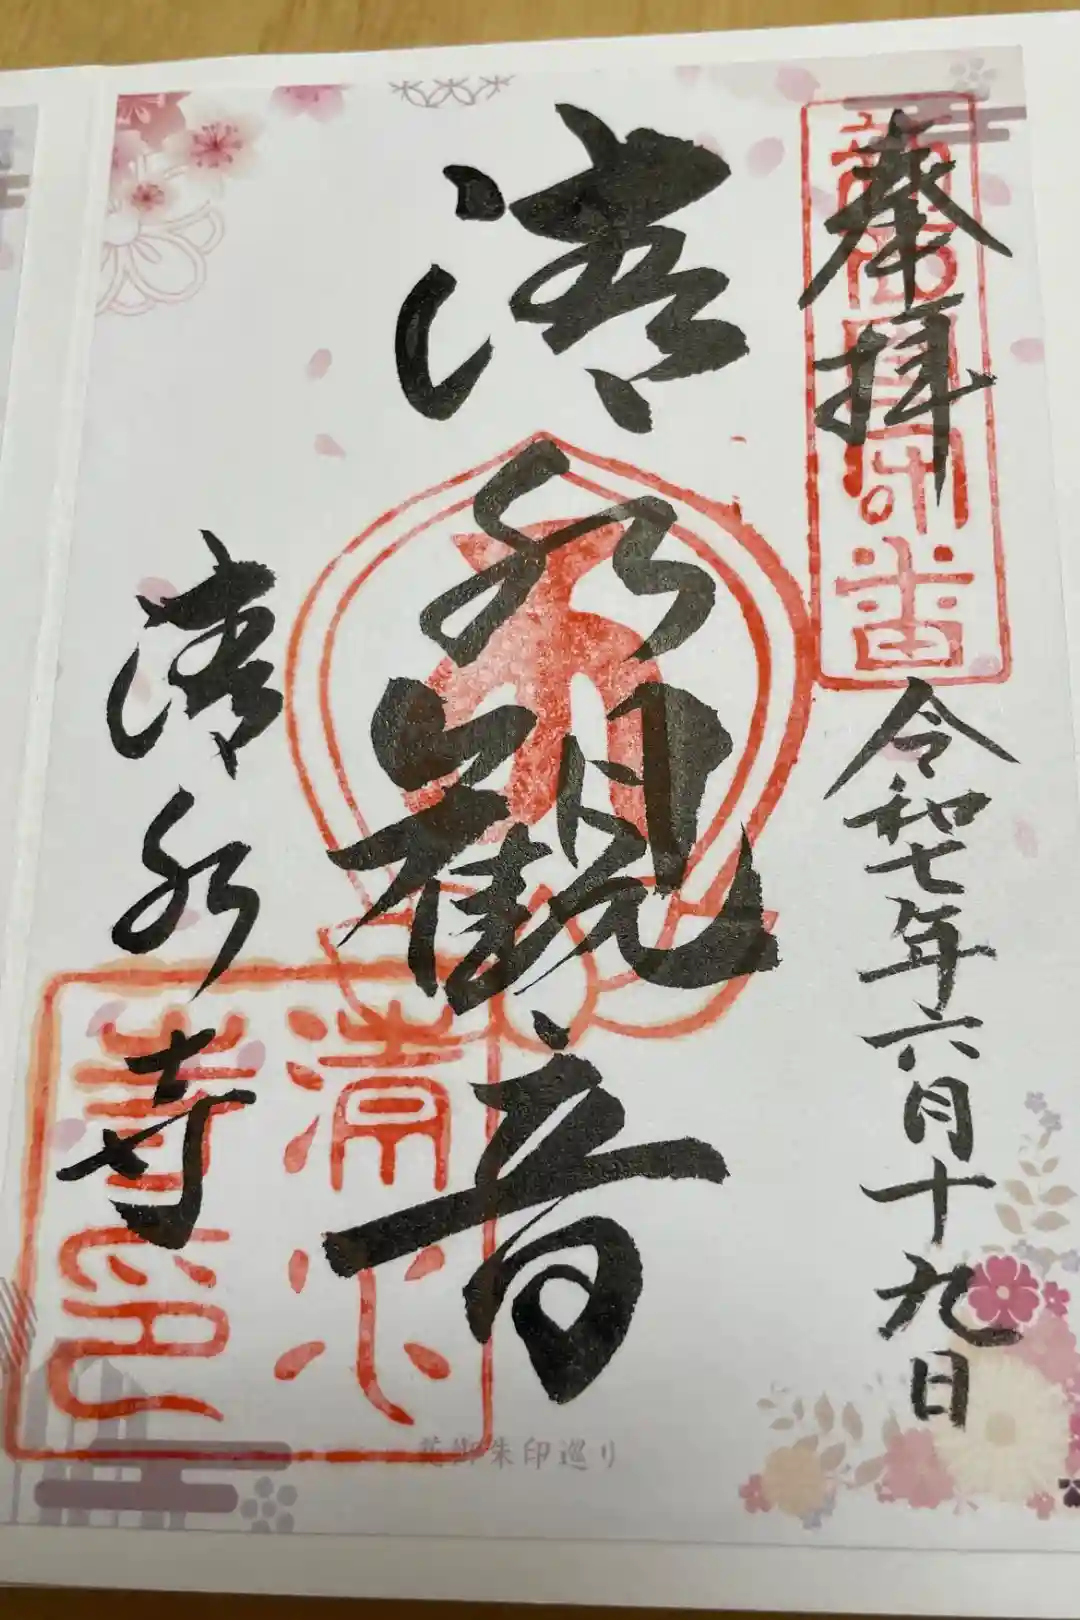 奉拝
令和七年六月十九日
清水観音
清水寺
清水
寺印
花御朱印巡り